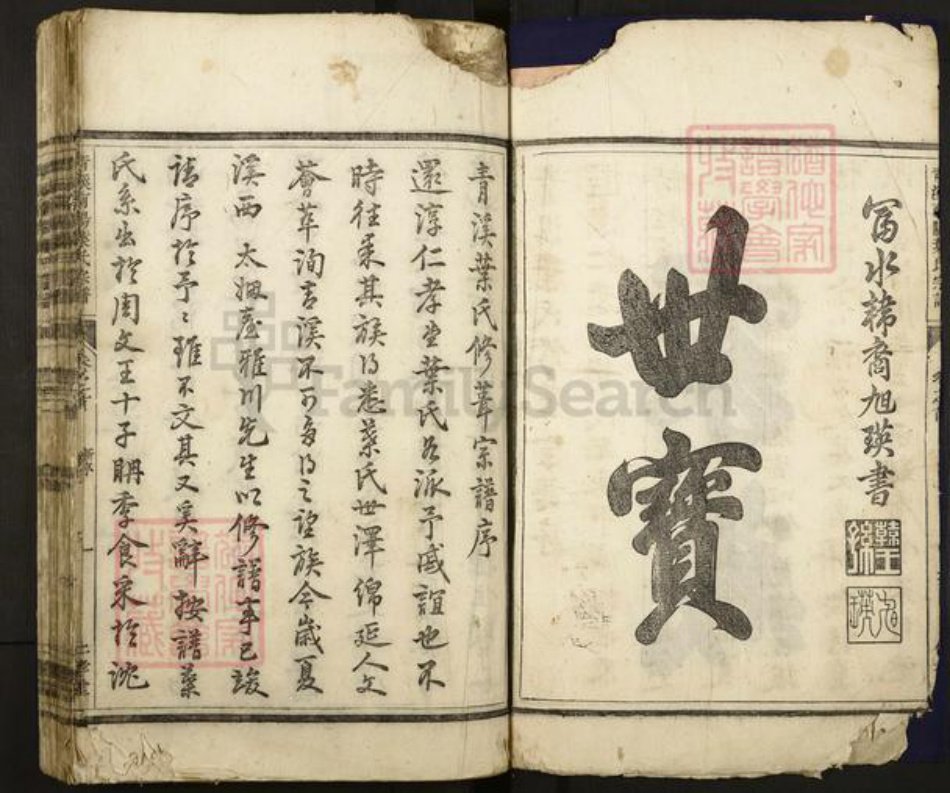 富水諱裔旭瑛書
世寶
青溪葉氏修葺宗譜序
還淳仁孝里葉氏名派予戚誼也不
時往來其族得悉葉氏世澤綿延人文
薈萃詢青溪不可多得之望族今歲夏
溪西太姻臺雅川先生以修譜事已竣
請序於予予雖不文其又奚辭按譜葉
氏系出於周文王十子聃季食采於沈
FamilySearch